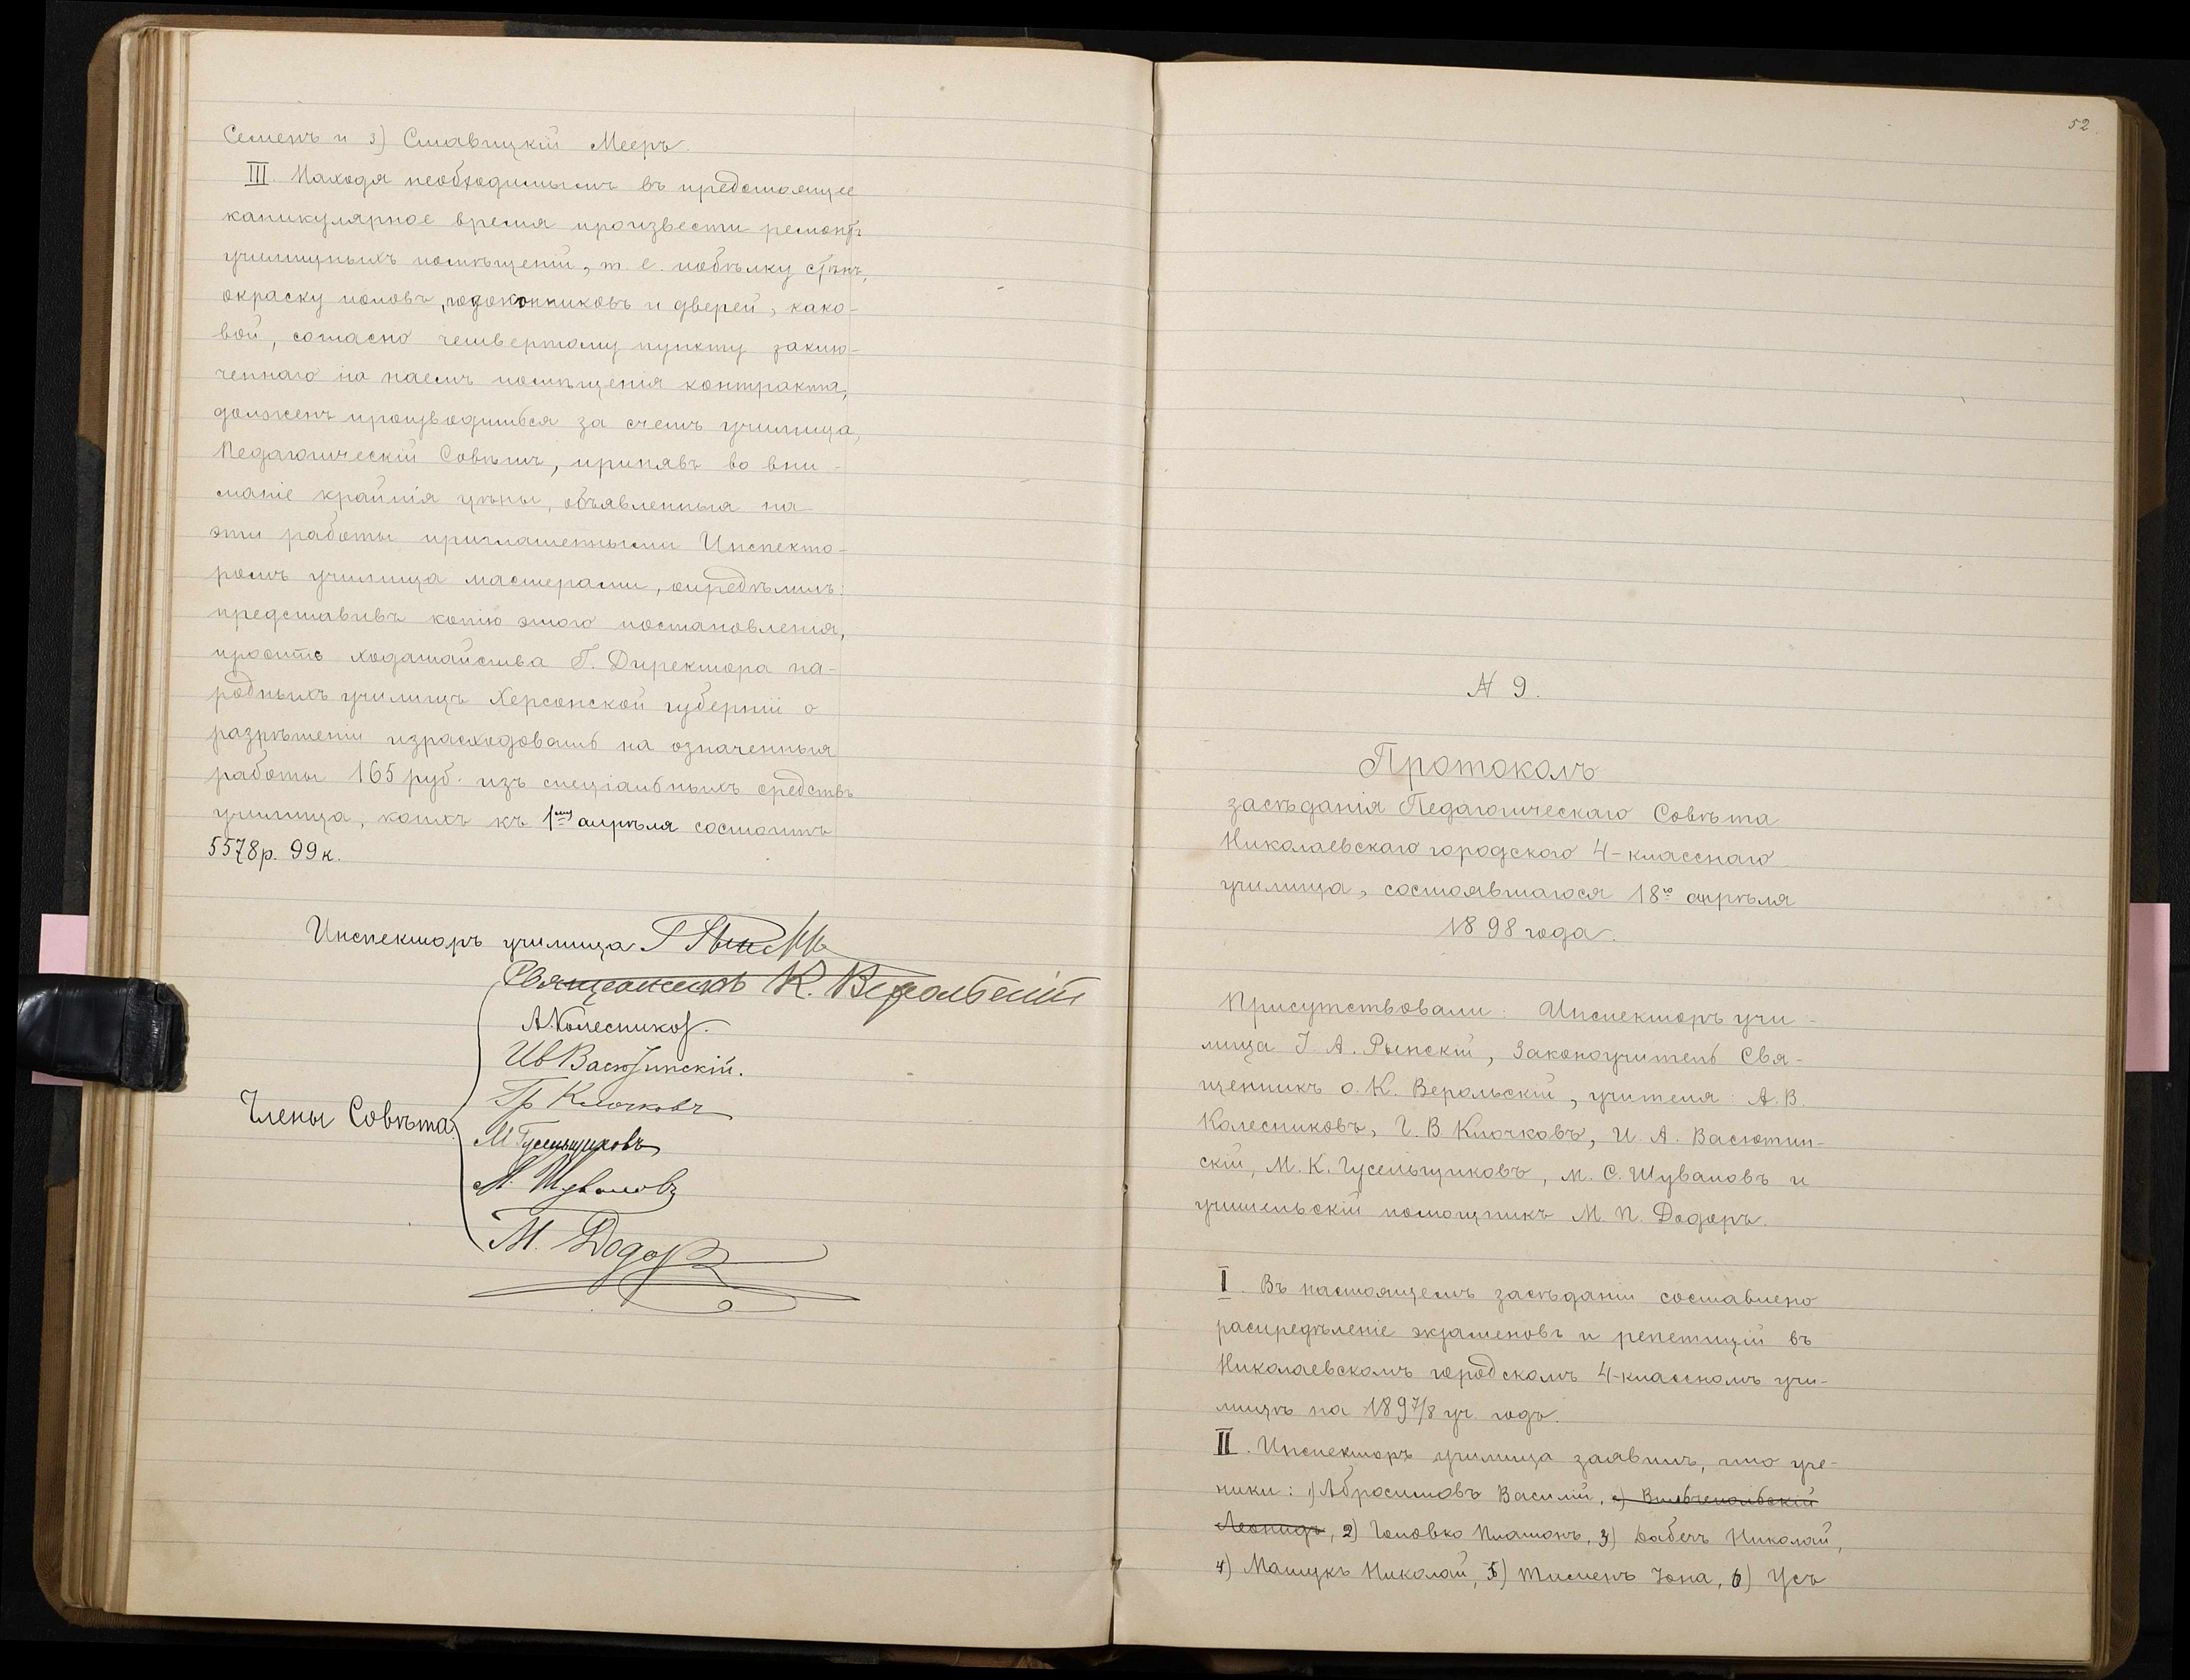 Семенъ и 3) Славицкій Мееръ.
III. Находя необходимымъ въ предстоящее
каникулярное время произвести ремонтъ
училищныхъ помѣщеній, т. е. побѣлку стѣнъ,
окраску половъ, подоконниковъ и дверей, како-
вой, согласно четвертому пункту заклю-
ченнаго на наемъ помѣщенія контракта,
долженъ производиться за счетъ училища,
Педагогическій Совѣтъ, принявъ во вни-
маніе крайнія цѣны, объявленныя на
эти работы приглашенными Инспекто-
ромъ училища мастерами, опредѣлилъ:
представивъ копію этого постановленія,
просить ходатайства Г. Директора на-
родныхъ училищъ Херсонской губерніи о
разрѣшеніи израсходовать на означенныя
работы 165 руб. изъ спеціальныхъ средствъ
училища, коихъ къ 1му апрѣля состоитъ
5578 р. 99 к.
Инспекторъ училища
Священникъ К. Верольскій
А. Колесников.
Ив Васютинскій.
Гр Клочковъ
Члены Совѣта:
М Гусельщиковъ
М. Шуваловъ
М. Додоръ
52.
№ 9.
Протоколъ
засѣданія Педагогическаго Совѣта
Николаевскаго городского 4-класснаго
училища, состоявшагося 18го апрѣля
1898 года.
Присутствовали: Инспекторъ учи-
лища І. А. Рынскій, Законоучитель Свя-
щенникъ о. К. Верольскій, учителя: А. В.
Колесниковъ, Г. В. Клочковъ, И. А. Васютин-
скій, М. К. Гусельщиковъ, М. С. Шуваловъ и
учительскій помощникъ М. П. Додоръ.
I. Въ настоящемъ засѣданіи составлено
распредѣленіе экзаменовъ и репетицій въ
Николаевскомъ городскомъ 4-классномъ учи-
лищѣ на 1897/8 уч. годъ.
II. Инспекторъ училища заявилъ, что уче-
ники: 1) Абросимовъ Василій, 2) Вильчепольскій
Леонидъ, 2) Головко Платонъ, 3) Дабечъ Николай,
4) Мащукъ Николай, 5) Тисменъ Іона, 6) Усъ